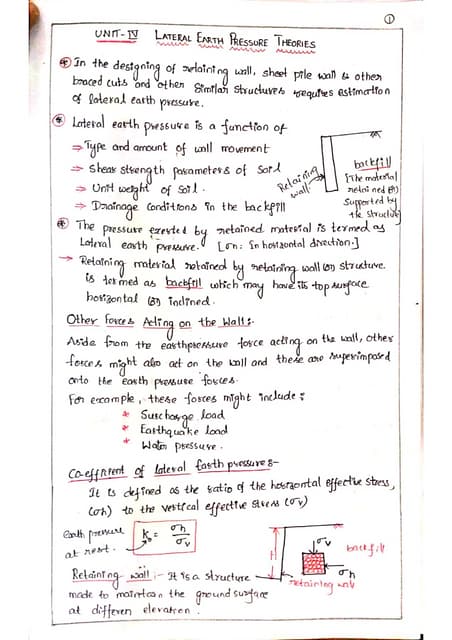 ①
UNIT-IV LATERAL EARTH PRESSURE THEORIES
* In the designing of retaining wall, sheet pile wall & other
braced cuts and other similar structures requires estimation
of lateral earth pressure.
* Lateral earth pressure is a function of
⇒ Type and amount of wall movement
⇒ Shear strength parameters of soil
⇒ Unit weight of soil.
⇒ Drainage conditions in the backfill
Retaining wall
backfill
[The material
retained (or)
supported by
the structure]
* The pressure exerted by retained material is termed as
Lateral earth pressure. [σh: In horizontal direction.]
→ Retaining material retained by retaining wall (or) structure.
is termed as backfill which may have its top surface
horizontal (or) inclined.
Other Forces Acting on the Wall:-
Aside from the earthpressure force acting on the wall, other
forces might also act on the wall and these are superimposed
onto the earth pressure forces.
For example, these forces might include:
* Surcharge load
* Earthquake load
* Water pressure.
Co-efficient of lateral Earth pressure:-
It is defined as the ratio of the horizontal effective stress,
(σh) to the vertical effective stress (σv)
earth pressure
at rest.
K₀ = σh/σv
H
σv
backfill
σh
retaining wall
Retaining wall :- It is a structure
made to maintain the ground surface
at differen elevation.